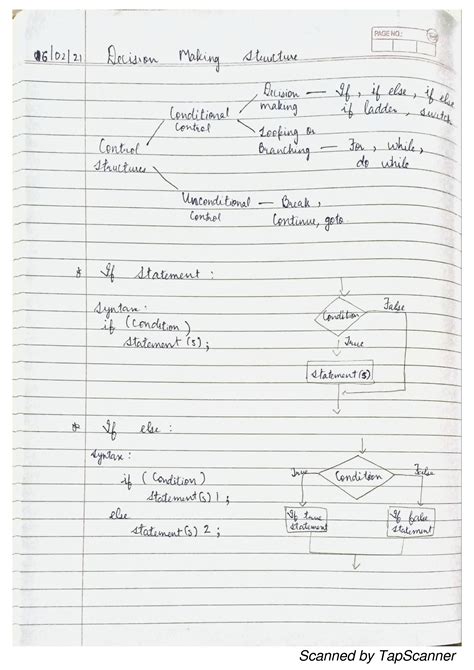 PAGE NO.:
06/02/21 Decision Making Structure
Decision making — If, if else, if else if ladder, switch
Conditional Control
Looping or Branching — For, While, do while
Control Structures
Unconditional Control — Break, Continue, goto
* If Statement :
Syntax:
if (Condition)
Statement (s);
Condition
False
True
Statement (s)
* If else :
Syntax:
if (Condition)
Statement(s) 1;
else
Statement(s) 2;
True
Condition
False
If true statement
If false statement
Scanned by TapScanner